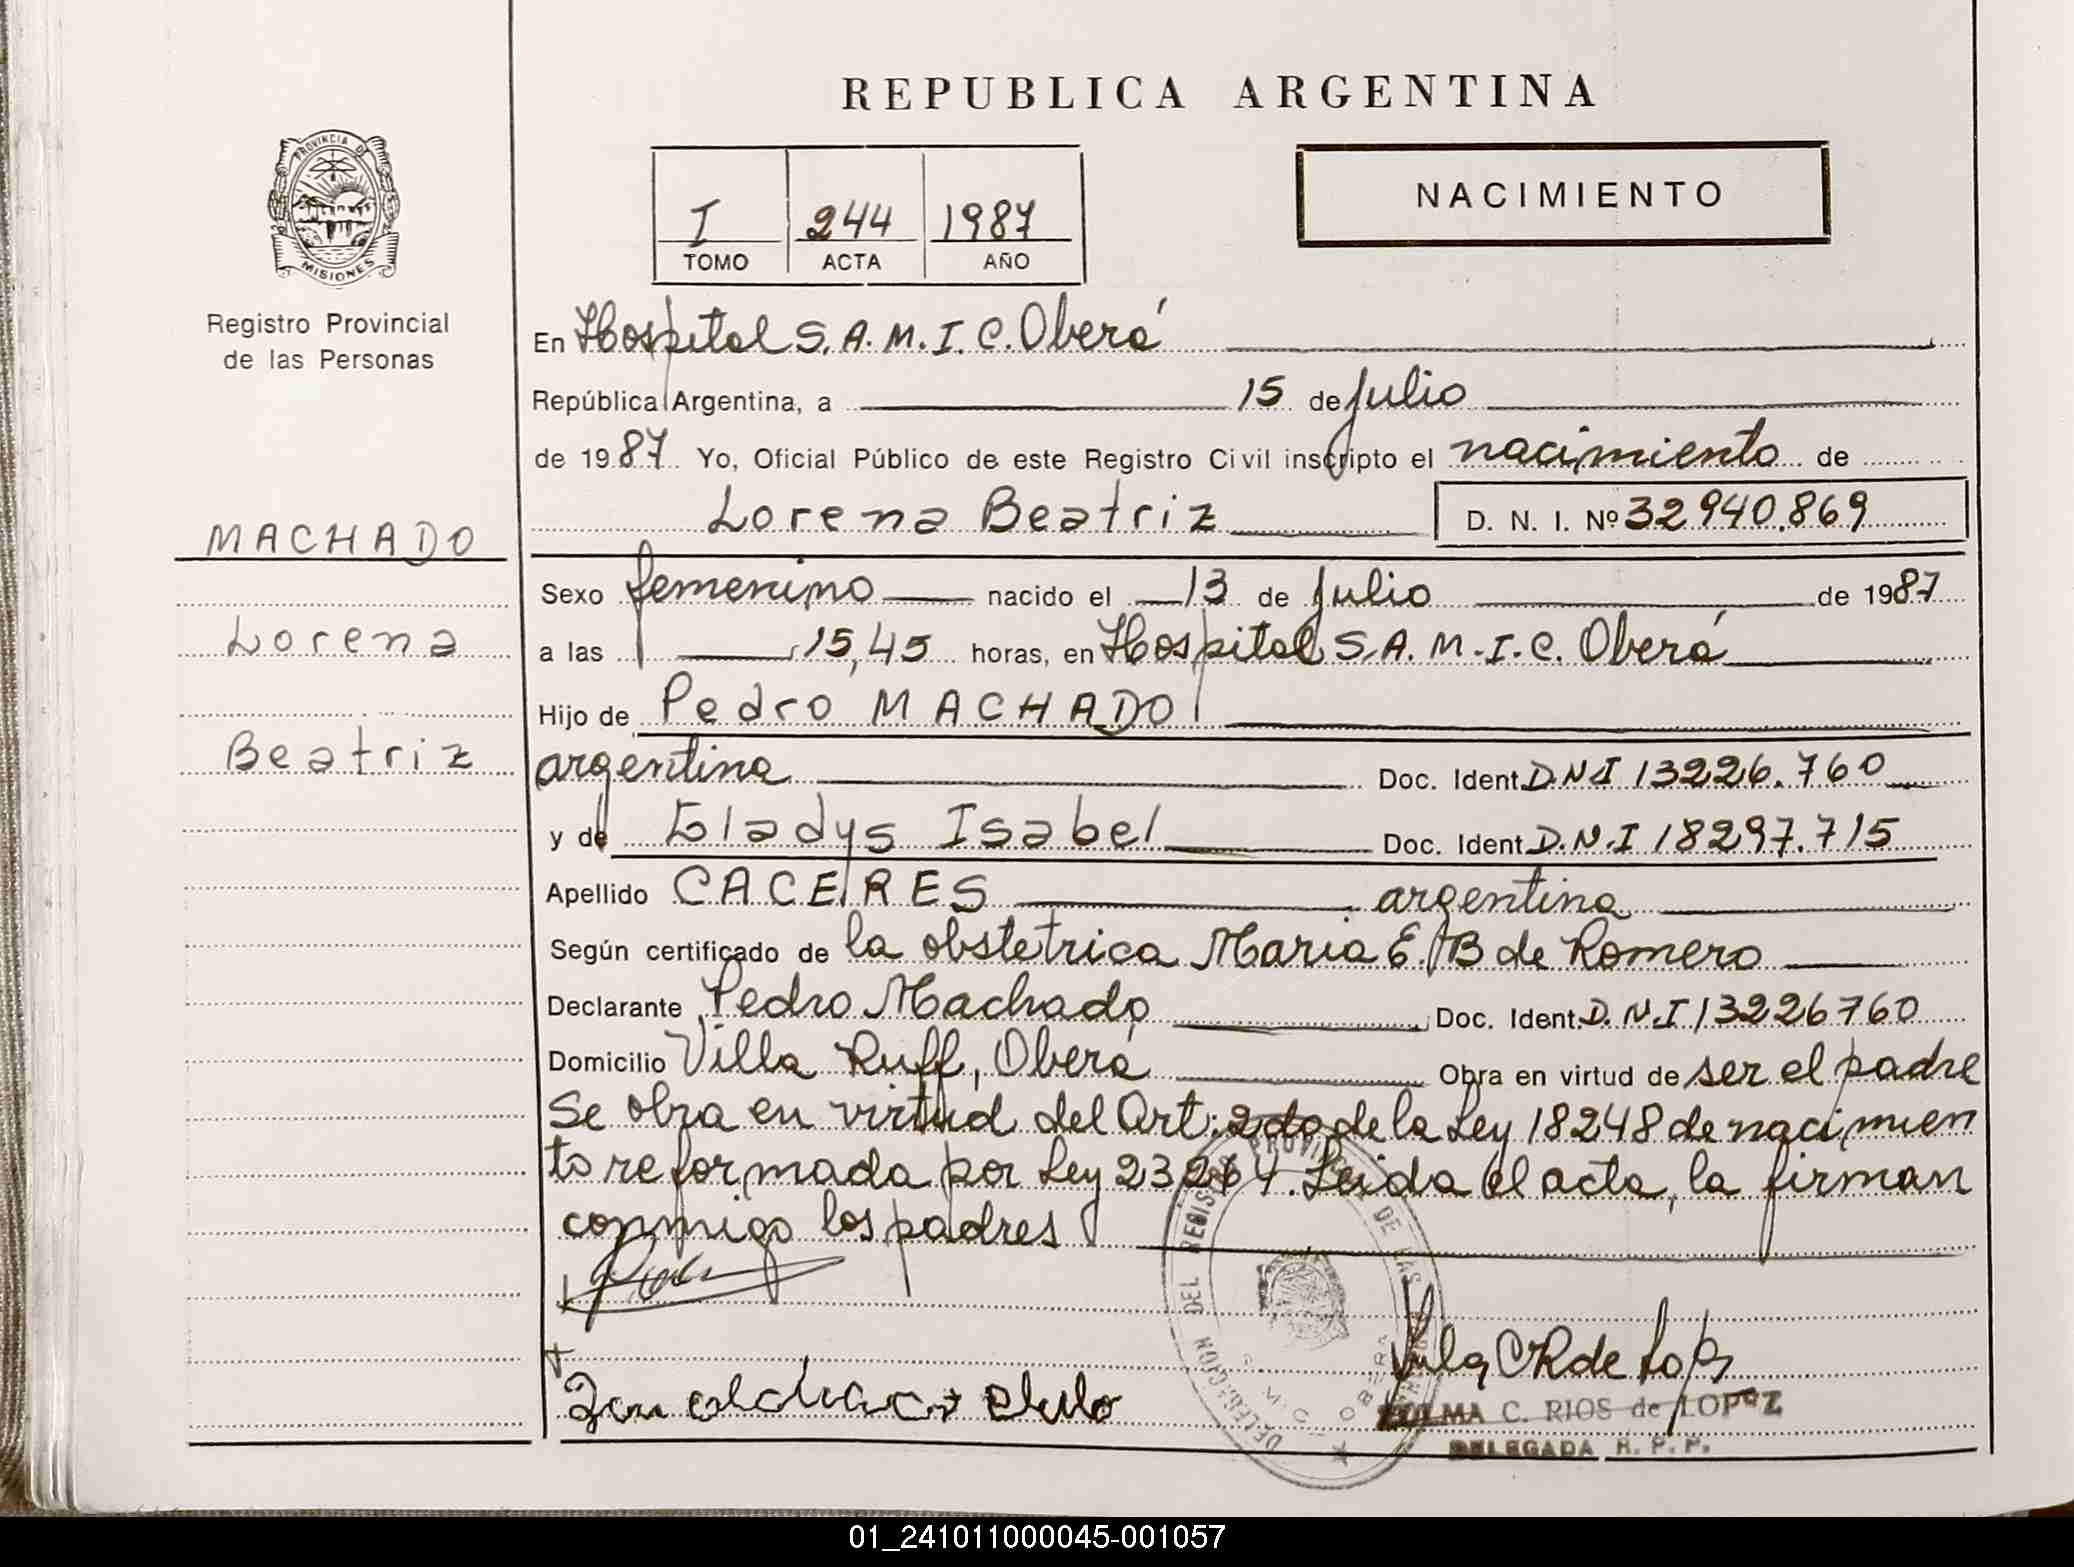 REPUBLICA ARGENTINA
PROVINCIA DE
MISIONES
Registro Provincial
de las Personas
I 244 1987
TOMO ACTA AÑO
NACIMIENTO
En Hospital S.A.M.I.C. Oberá
República Argentina, a 15 de Julio
de 1987 Yo, Oficial Público de este Registro Civil inscripto el nacimiento de
Lorena Beatriz D. N. I. Nº 32940.869
MACHADO
Lorena
Beatriz
Sexo femenino nacido el 13 de Julio de 1987
a las 15,45 horas, en Hospital S.A.M.I.C. Oberá
Hijo de Pedro MACHADO
argentina Doc. Ident. D.N.I 13226.760
y de Gladys Isabel Doc. Ident. D.N.I 18297.715
Apellido CACERES argentina
Según certificado de la obstetrica Maria E. B de Romero
Declarante Pedro Machado Doc. Ident. D.N.I 13226760
Domicilio Villa Ruff, Oberá Obra en virtud de ser el padre
Se obra en virtud del Art: 2do de la Ley 18248 de nacimien
to reformada por Ley 23264. Leida el acta, la firman
conmigo los padres
DELEGACION DEL REGISTRO PROVINCIAL DE LAS
C. RIOS de LOPEZ
DELEGADA R. P. P.
01_241011000045-001057